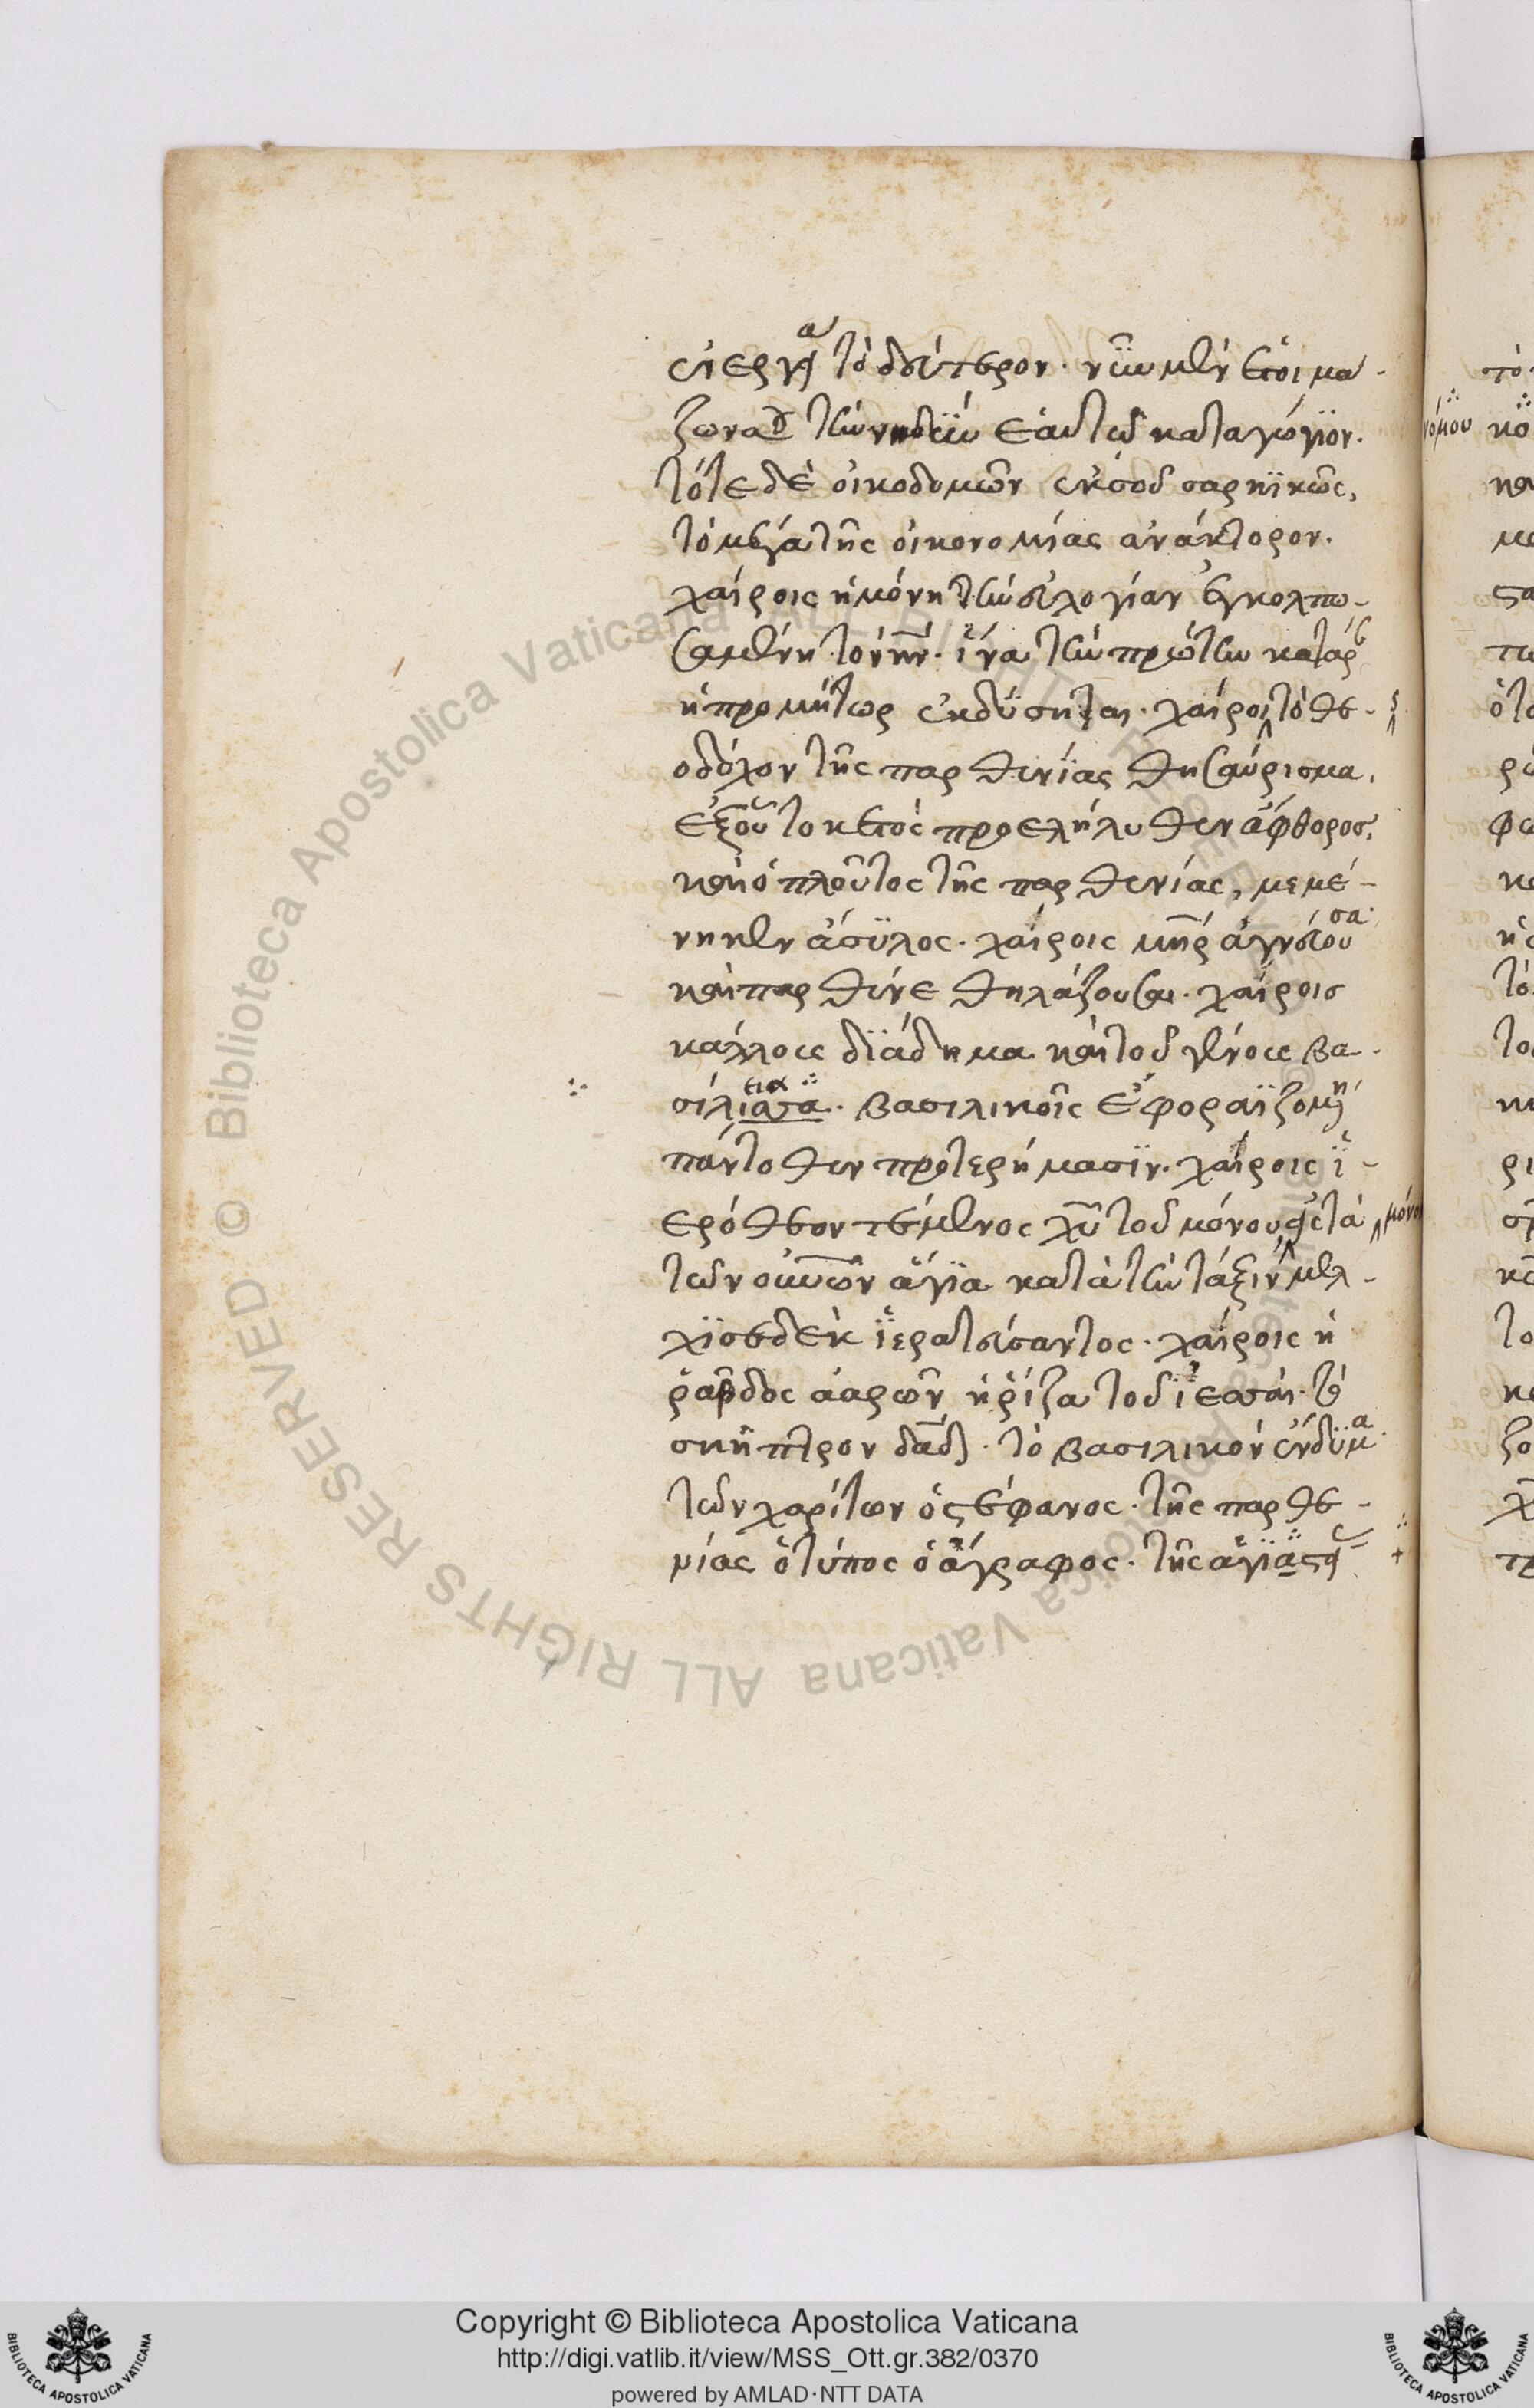 ἐνεργῆ τὸ δεύτερον. νῦν μὲν ἑτοιμά-
ζων τὴν νηδὺν ἑαυτῶ καταγώγϊον.
τότε δὲ οἰκοδομῶν ἐκ σοῦ σαρκϊκῶς,
τὸ μέγα τῆς οἰκονομίας ἀνάκτορον.
χαίροις ἡ μόνη τὴν εὐλογίαν ἐγκολπω-
σαμένη τὸν ἵνα τὴν πρώτην κατάρ
ἡ προμήτωρ ἐκδύσηται. χαίροι τὸ θε-
οδόχον τῆς παρθενίας θησαύρισμα,
ἐξ οὗ τοκετὸς προελήλυθεν ἄφθορος,
καὶ ὁ πλοῦτος τῆς παρθενίας, μεμέ-
νηκεν ἄσϋλος. χαίροις μῆρ ἁγνεύουσα
καὶ παρθένε θηλάζουσα. χαίροις
κάλλους δϊάδημα καὶ τοῦ γένους βα-
σίλισσα. βασιλικοῖς ἐφοραϊζομένη
πάντοθεν προτερήμασϊν. χαίροις ἱ-
ερόθεον τέμενος χῦ τοῦ μόνου εἰς τὰ μόνου
τῶν αἰώνων ἅγϊα κατὰ τὴν τάξιν μελ-
χϊσεδὲκ ἱερατεύσαντος. χαίροις ἡ
ῥάβδος ἀαρὼν ἡ ῥίζα τοῦ ἰεσσαί. τὸ
σκῆπτρον δαδ. τὸ βασιλικὸν ἔνδϋμα
τῶν χαρίτων ὁ στέφανος. τῆς παρθε-
νίας ὁ τύπος ὁ ἄγραφος. τῆς ἁγϊα
Copyright © Biblioteca Apostolica Vaticana
http://digi.vatlib.it/view/MSS_Ott.gr.382/0370
powered by AMLAD·NTT DATA